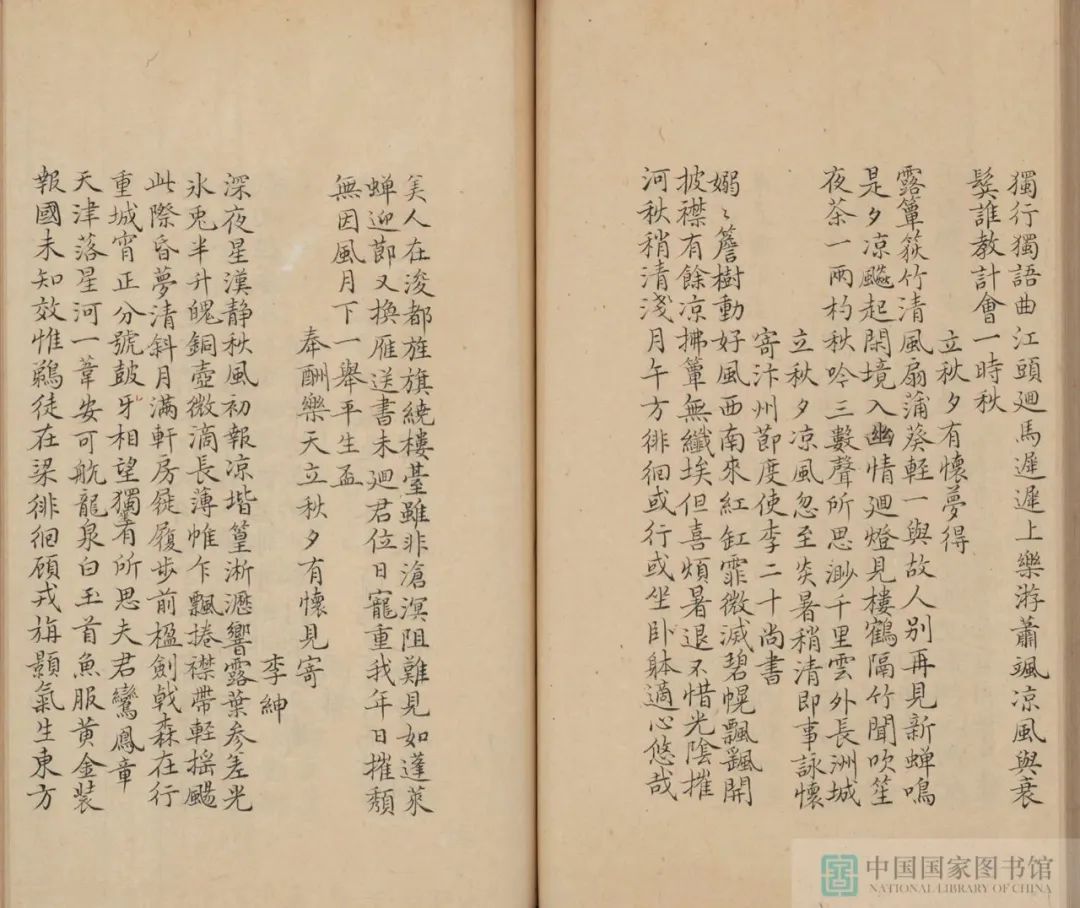 獨行獨語曲江頭廻馬遲遲上樂游蕭颯凉風與衰
鬓誰教計會一時秋
立秋夕有懷夢得
露簟荻竹清風扇蒲葵輕一與故人别再見新蝉鳴
是夕凉飈起閑境入幽情廻燈見樓鶴隔竹聞吹笙
夜茶一兩杓秋吟三數聲所思渺千里雲外長洲城
立秋夕凉風忽至炎暑稍清即事詠懷
寄汴州節度使李二十尚書
嫋〻簷樹動好風西南來紅缸霏微滅碧幌飄颻開
披襟有餘凉拂簟無纖埃但喜煩暑退不惜光陰摧
河秋稍清淺月午方徘徊或行或坐卧躰適心悠哉
美人在浚都旌旗繞樓臺雖非滄溟阻難見如蓬萊
蝉迎節又換雁送書未廻君位日寵重我年日摧頹
無因風月下一舉平生盃
奉酬樂天立秋夕有懷見寄
李紳
深夜星漢静秋風初報凉堦篁淅瀝響露葉参差光
氷兎半升魄銅壺微滴長薄帷乍飄捲襟帶輕摇颺
此際昏夢清斜月滿軒房屣履步前楹劍戟森在行
重城宵正分號鼓牙相望獨有所思夫君鸞鳳章
天津落星河一葦安可航龍泉白玉首魚服黄金装
報國未知效惟鵜徒在梁徘徊顧戎旃顥氣生東方
中国国家图书馆
NATIONAL LIBRARY OF CHINA